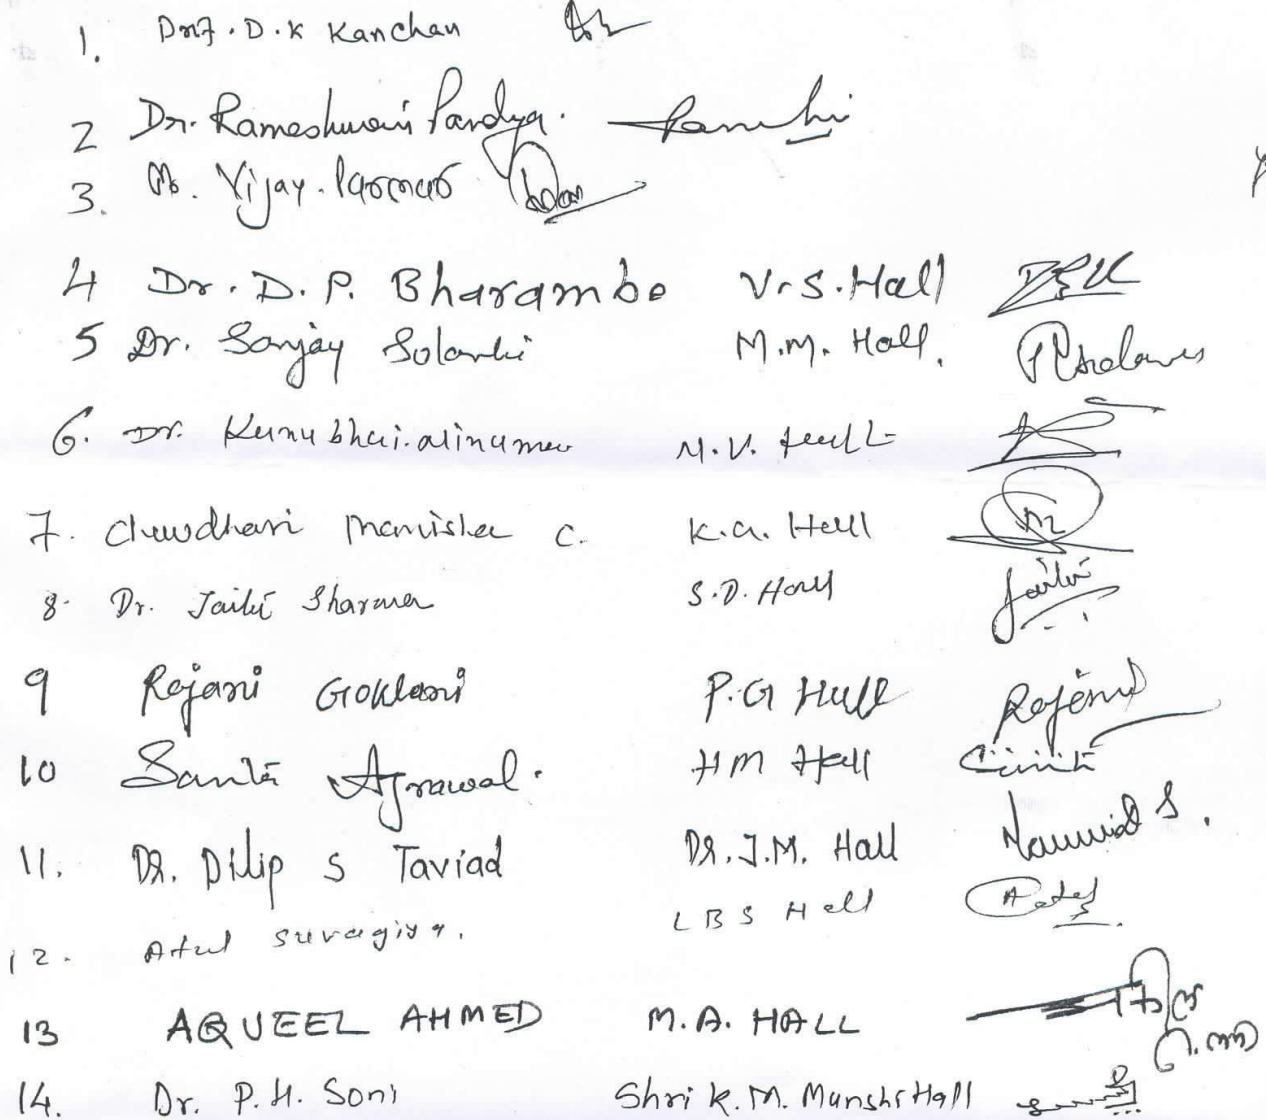 1. Prof. D. K Kanchan
2 Dr. Rameshwari Pandya.
3. Mr. Vijay. Parmar
4 Dr. D. P. Bharambe V.S. Hall
5 Dr. Sanjay Solanki M.M. Hall.
6. Dr. Kanubhai M.V. Hall
7. Chowdhari Manisha C. K.G. Hall
8. Dr. Jaili Sharma S.D. Hall
9 Rajani Goklani P.G Hall
10 Sarita Agrawal. HM Hall
11. DR. Dilip S Taviad DR. J.M. Hall
12. Atul Suvagiya. LBS Hall
13 AQUEEL AHMED M.A. HALL
14. Dr. P. H. Soni Shri K. M. Munshi Hall